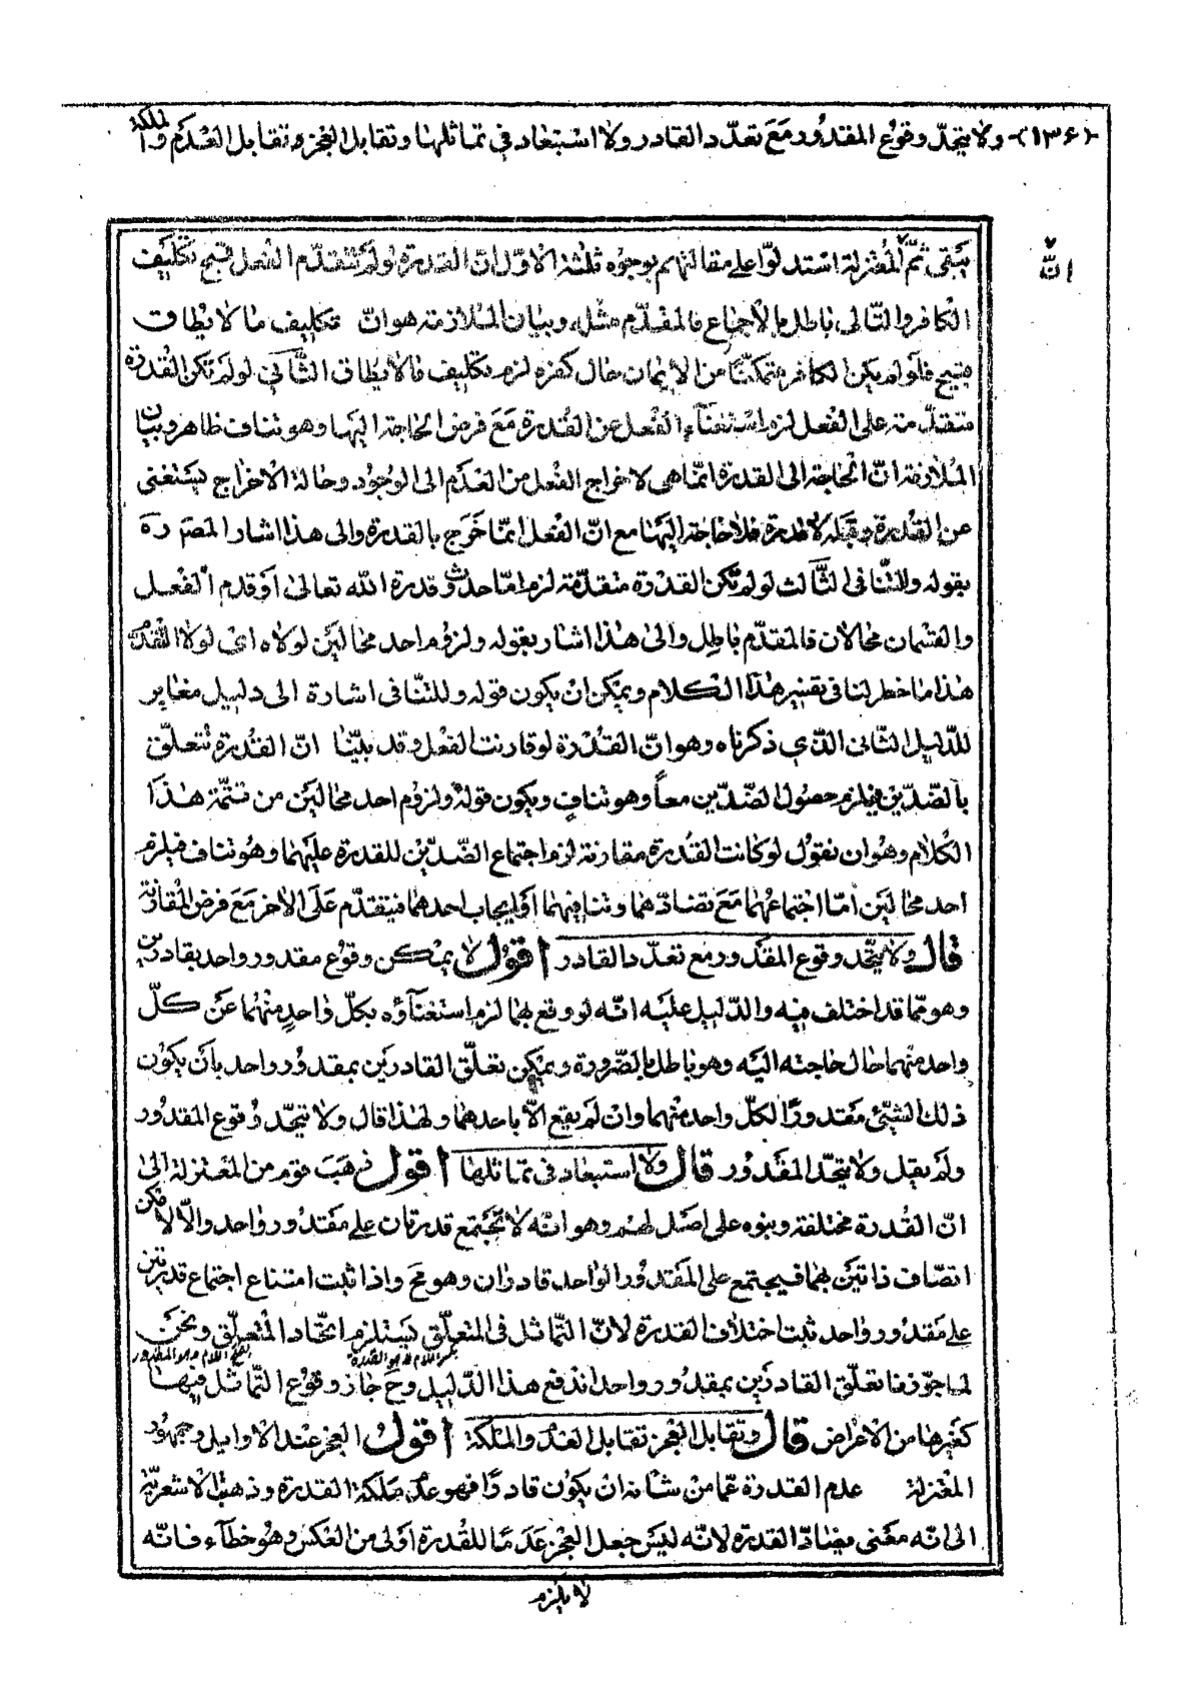 (١٣۶) ولا يتحد وقوع المقدور مع تعدد القادر ولا استبعاد في تماثلها وتقابل العجز وتقابل العدم والملكة
انّ
يبقى ثمّ المعتزلة استدلوا على مقالتهم بوجوه ثلثة الاوّل انّ القدرة لو لم تتقدّم الفعل قبح تكليف
الكافر والتّالى باطل بالاجماع فالمقدّم مثله وبيان الملازمة هو انّ تكليف ما لا يطاق
قبيح فلو لم يكن الكافر متمكّنا من الايمان حال كفره لزم تكليف مالايطاق الثّاني لو لم تكن القدرة
متقدّمة على الفعل لزم استغناء الفعل عن القدرة مع فرض الحاجة اليها وهو تناف ظاهر وبيان
الملازمة انّ الحاجة الى القدرة انّما هى لاخراج الفعل من العدم الى الوجود وحالة الاخراج يستغنى
عن القدرة وقبله لا قدرة فلا حاجة اليها مع انّ الفعل انّما خرج بالقدرة والى هذا اشار المصّ ره
بقوله وللتّنافى الثّالث لو لم تكن القدرة متقدّمة لزم امّا حدوث قدرة الله تعالى او قدم الفعل
والقسمان محالان فالمقدّم باطل والى هذا اشار بقوله ولزوم احد محالين لولاه اى لولا التّقدّم
هذا ما خطر لنا فى تفسير هذا الكلام ويمكن ان يكون قوله وللتّنافى اشارة الى دليل مغاير
للدّليل الثّانى الذّي ذكرناه وهو انّ القدرة لو قارنت الفعل وقد بيّنا انّ القدرة تتعلّق
بالضّدّين فيلزم حصول الضّدّين معاً وهو تنافٍ ويكون قوله ولزوم احد محالين من تتمّة هذا
الكلام وهو ان نقول لو كانت القدرة مقارنة لزم اجتماع الضّدّين للقدرة عليهما وهو تناف فيلزم
احد محالين امّا اجتماعهما مع تضادّهما وتنافيهما او ايجاب احدهما فيتقدّم على الاخر مع فرض المقارنة
قال ولا يتّحد وقوع المقدور مع تعدّد القادر اقول لا يمكن وقوع مقدور واحد بقادرين
وهو ممّا قد اختلف فيه والدّليل عليه انّه لو وقع بهما لزم استغناؤه بكلّ واحدٍ منهما عن كلّ
واحد منهما حال حاجته اليه وهو باطل بالضّرورة ويمكن تعلّق القادرين بمقدور واحد بان يكون
ذلك الشّئ مقدورًا لكلّ واحد منهما وان لم يقع الّا باحدهما ولهذا قال ولا يتّحد وقوع المقدور
ولم يقل ولا يتّحد المقدور قال ولا استبعاد فى تماثلها اقول ذهب قوم من المعتزلة الى
انّ القدرة مختلفة وبنوه على اصل لهم وهو انّه لا تجتمع قدرتان على مقدور واحد والّا لامكن
اتصّاف ذاتين بهما فيجتمع على المقدور الواحد قادران وهو مح واذا ثبت امتناع اجتماع قدرتين
على مقدور واحد ثبت اختلاف القدرة لانّ التّماثل فى المتعلّق يستلزم اتّحاد المتعلّق ونحن
بكسر اللام وهو القدرة بفتح اللام وهو المقدور
لما جوّزنا تعلّق القادرين بمقدور واحد اندفع هذا الدّليل وح جاز وقوع التّماثل فيها
كغيرها من الاعراض قال وتقابل العجز تقابل العدم والملكة اقول العجز عند الاوايل وجمهور
المعتزلة عدم القدرة عمّا من شانه ان يكون قادرًا فهو عدم ملكة القدرة وذهبت الاشعريّة
الى انّه معنى يضادّ القدرة لانّه ليس جعل العجز عدمًا للقدرة اولى من العكس وهو خطآء فانّه
لا يلزم